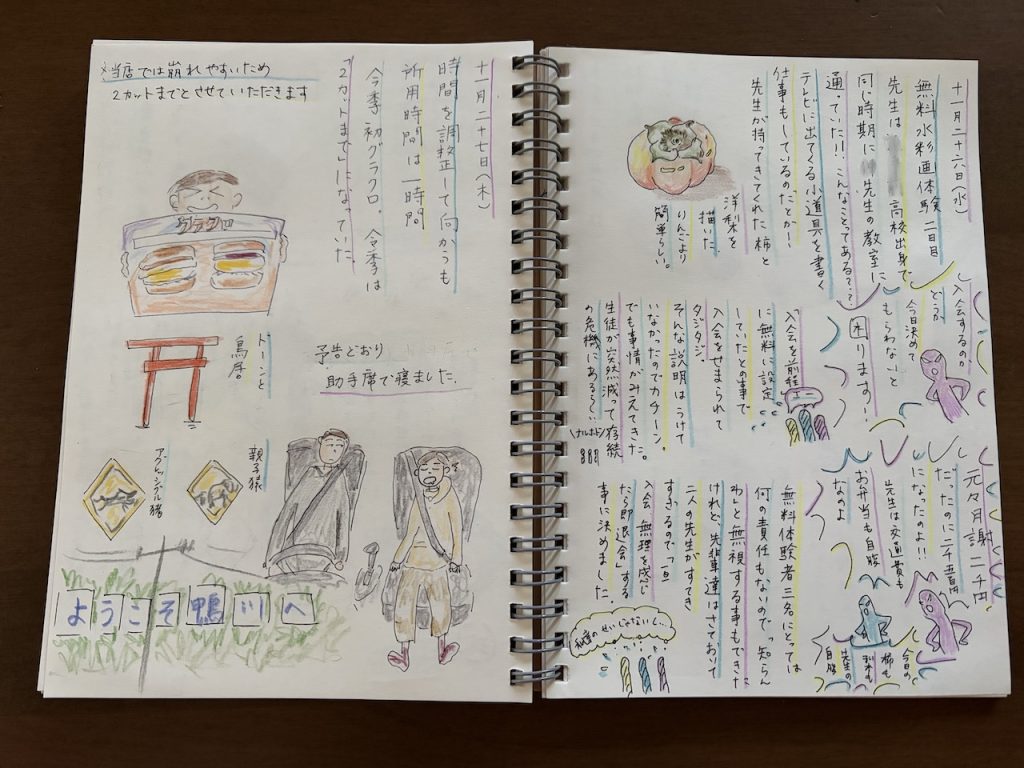 十一月二十六日(水)
無料水彩画体験二日目
先生は
高校出身で
同じ時期に
先生の教室に
通っていた!!こんなことってある??
テレビに出てくる小道具を書く
仕事もしているのだとか!
先生が持ってきてくれた柿と
洋梨を
描いた
りんごより
簡単らしい。
入会するのか
どうか
今日決めて
もらわないと
困ります!
「入会を前程」
に無料に設定
していたとの事で
入会をせまられて
タジタジ。
そんな説明はうけて
いなかったのでカチーン。
でも事情がみえてきた。
生徒が突然減って存続
の危機にあるらしい
ナルホドン
元々月謝二千円
だったのに二千五百円
になったのよ!!
先生は交通費も
お弁当も自腹
なのよ
今日の
柿も
梨も
先生の
自腹
無料体験者三名にとっては
何の責任もないので「知らん
わ」と無視する事もできた
けれど、先輩達はさておいて
二人の先生がすてき
すぎるので「一旦
入会、無理を感じ
たら即退会」する
事に決めました。
私達のせいじゃないし…
十一月二十七日(木)
時間を調整して向かうも
所用時間は一時間
今季初グラクロ。今季は
「2カットまで」になっていた。
※当店では崩れやすいため
2カットまでとさせていただきます
グラクロ
予告どおり
助手席で寝ました。
トーンと
鳥居
親子猿
アンビシャル猪
ようこそ鴨川へ